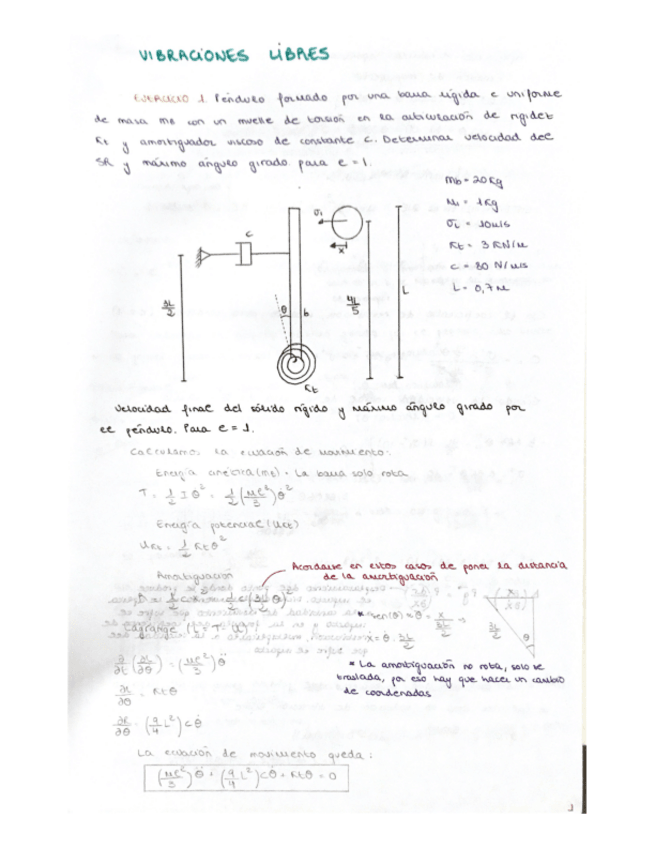 VIBRACIONES LIBRES
EJERCICIO 1. Péndulo formado por una barra rígida e uniforme
de masa mB con un muelle de torsión en la articulación de rigidez
Kt y amortiguador viscoso de constante c. Determinar velocidad del
SR y máximo ángulo girado para e = 1.
mb = 20 Kg
M1 = 1 Kg
Kt = 3 KN/m
c = 80 N/m/s
L = 0,7 m
c
x
θ
b
L
4L/5
Kt
Velocidad final del sólido rígido y máximo ángulo girado por
el péndulo. Para e = 1.
Calculamos la ecuación de movimiento:
Energía cinética (mt) · La barra solo rota
T = 1/2 I θ̇² = 1/2 (ML²/3) θ̇²
Energía potencial (Ukt)
Ukt = 1/2 Kt θ²
Acordarse en estos casos de poner la distancia
de la amortiguación
Amortiguación
* sen(θ) ≈ θ = x / 3L/2 ⇒
x = θ · 3L/2
3L/2
θ
Lagrange (L = T - U)
* La amortiguación no rota, solo se
traslada, por eso hay que hacer un cambio
de coordenadas
= (ML²/3) θ̈
= Kt θ
∂R/∂θ̇ = (9/4 L²) c θ̇
La ecuación de movimiento queda:
(ML²/3) θ̈ + (9/4 L²) c θ̇ + Kt θ = 0